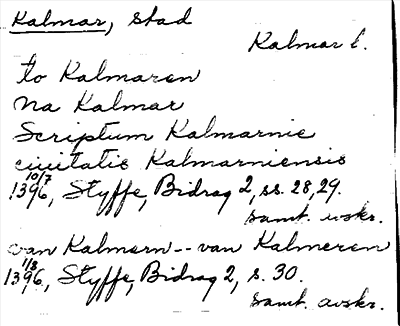 Kalmar, stad
Kalmar l.
to Kalmaren
na Kalmar
Scriptum Kalmarnie
ciuitatis Kalmarniensis
10/7
1396, Styffe, Bidrag 2, ss. 28, 29.
samt. avskr.
van Kalmern -- van Kalmeren
1/8
1396, Styffe, Bidrag 2, s. 30.
samt. avskr.